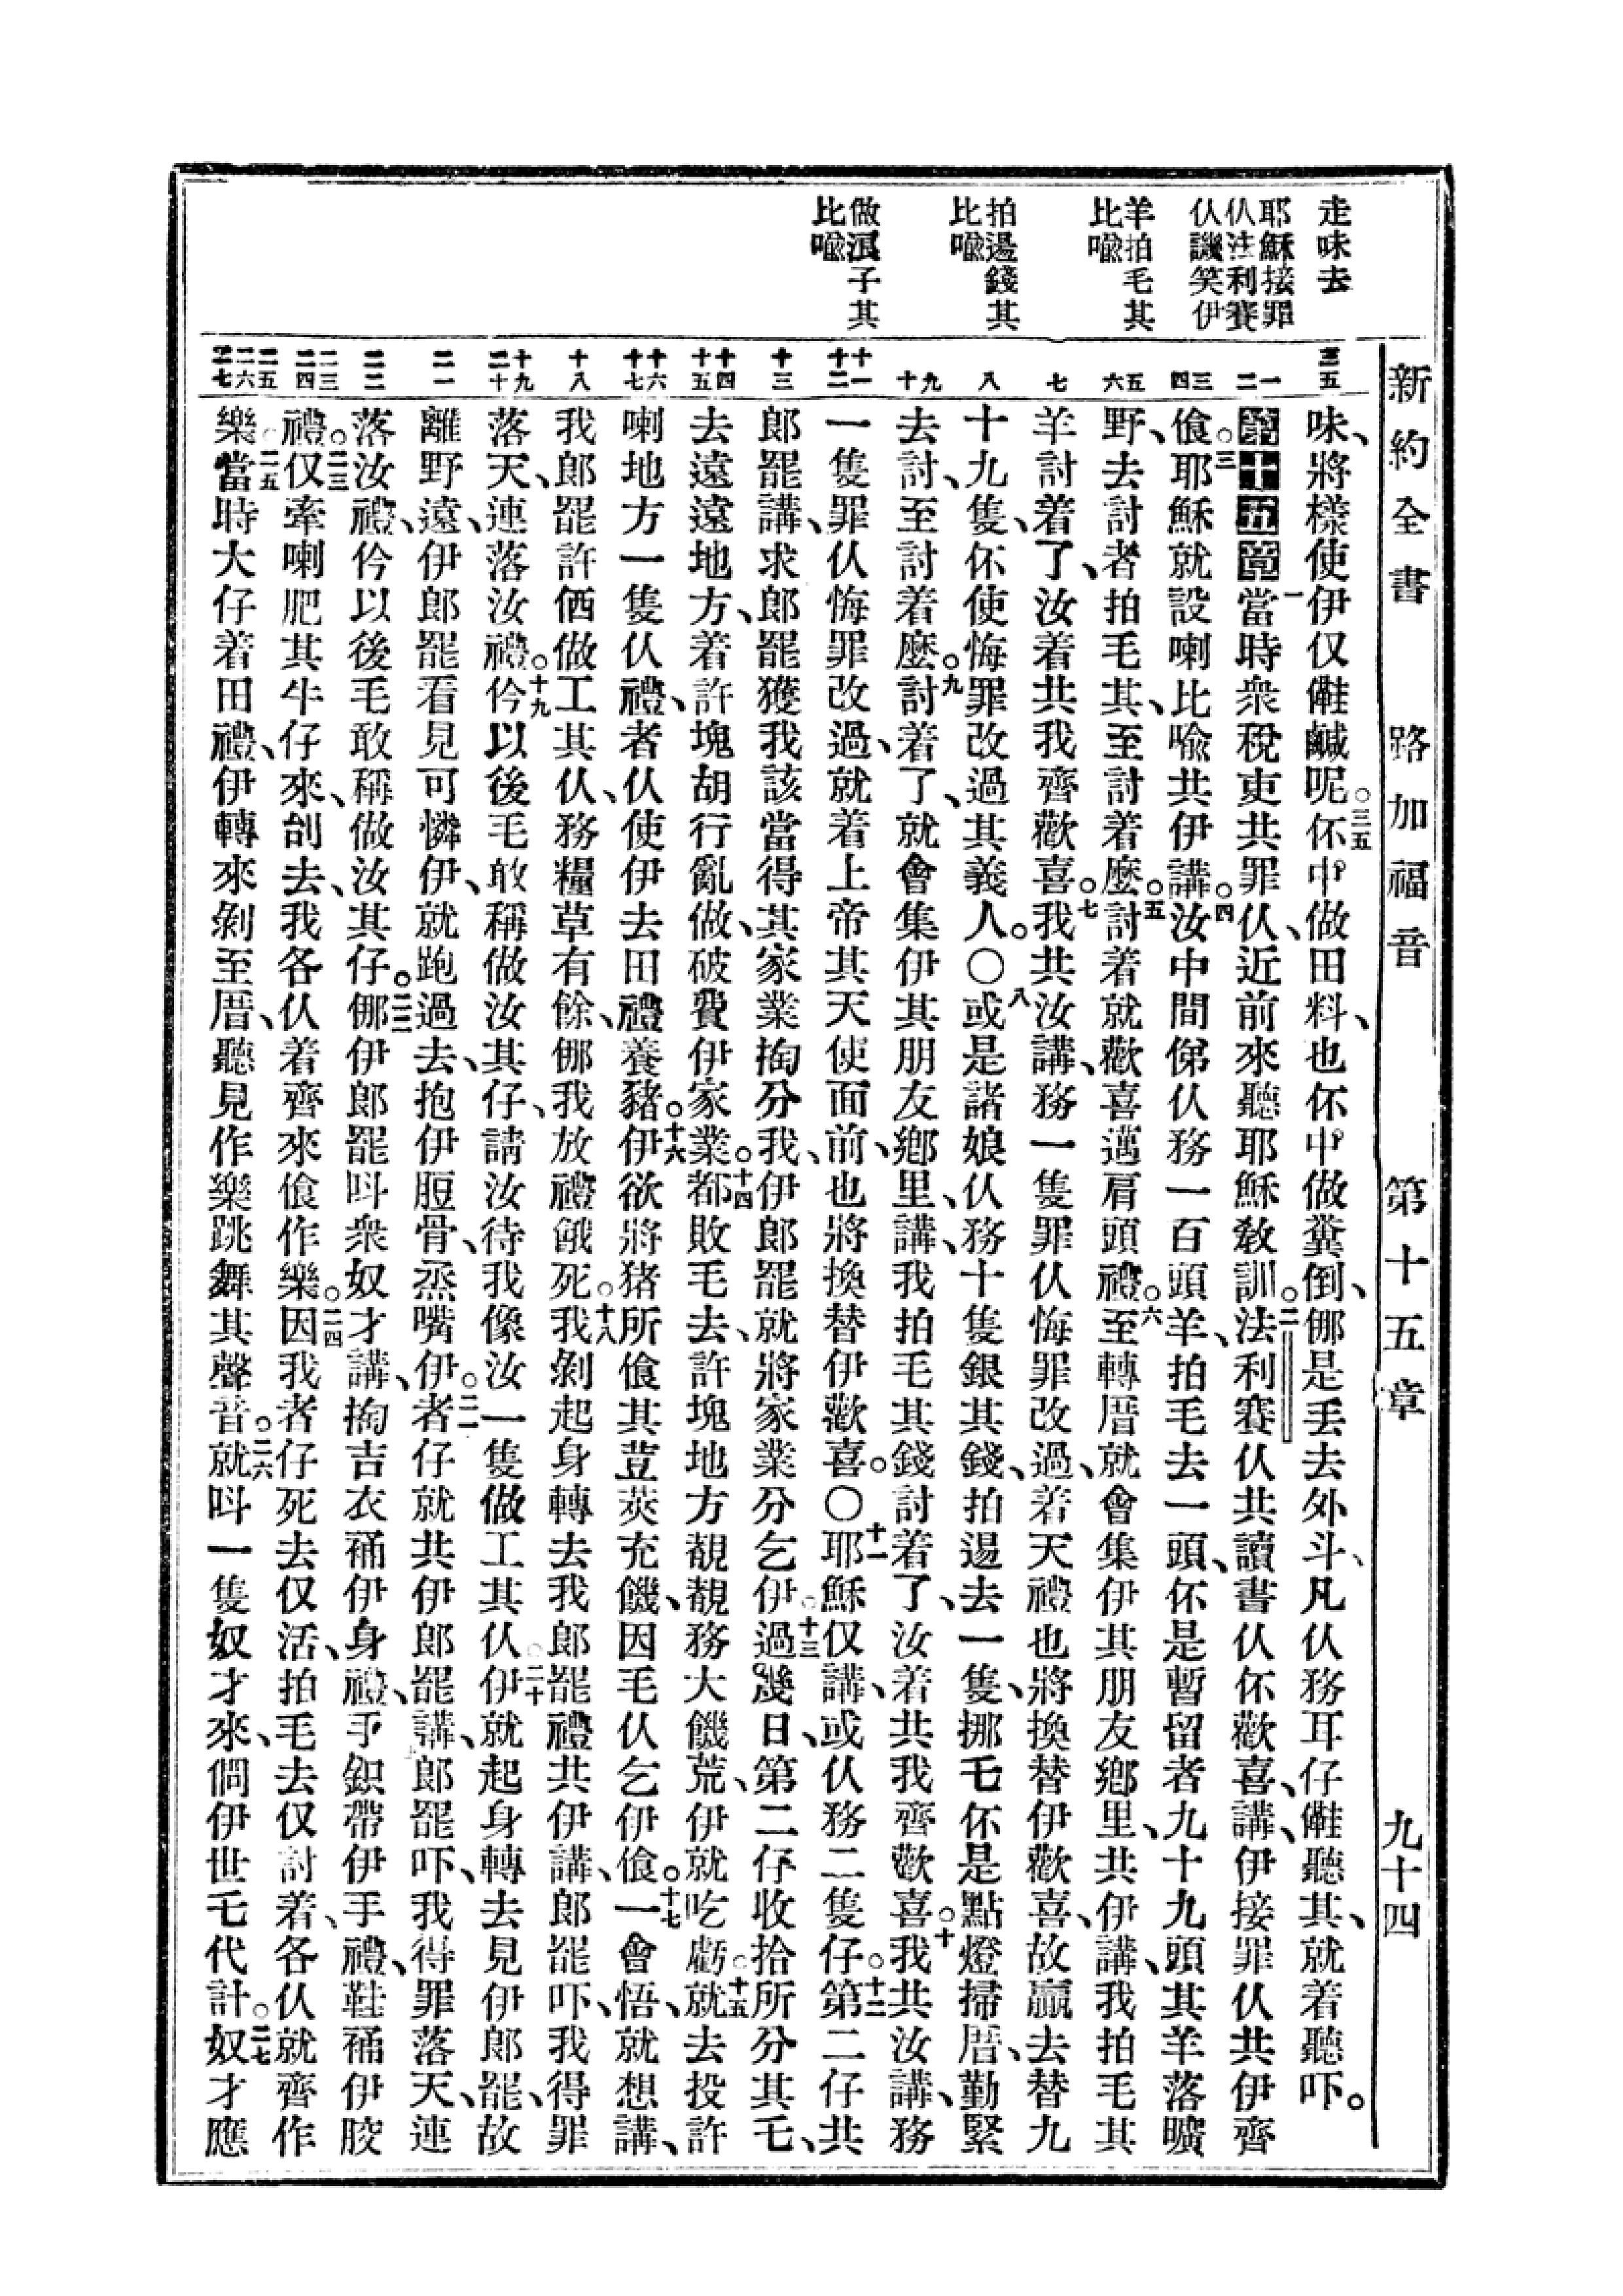 新約全書 路加福音 第十五章 九十四
走味去
耶穌接罪
仈法利賽
仈譏笑伊
羊拍毛其
比喻
拍逿錢其
比喻
做浪子其
比喻
三五
一
二
三
四
五
六
七
八
九
十
十一
十二
十三
十四
十五
十六
十七
十八
十九
二十
二一
二二
二三
二四
二五
二六
二七
味、將樣使伊仅儺鹹呢。三五伓中做田料、也伓中做糞倒、挪是丢去外斗、凡仈務耳仔儺聽其、就着聽吓。
第十五章一當時衆稅吏共罪仈、近前來聽耶穌敎訓。二法利賽仈共讀書仈伓歡喜、講、伊接罪仈共伊齊
飡。三耶穌就設喇比喻共伊講。四汝中間俤仈務一百頭羊、拍毛去一頭、伓是暫留者九十九頭其羊落曠
野、去討者拍毛其、至討着麽。五討着就歡喜邁肩頭禮。六至轉厝就會集伊其朋友鄉里、共伊講、我拍毛其
羊討着了、汝着共我齊歡喜。七我共汝講、務一隻罪仈悔罪改過、着天禮也將換替伊歡喜、故贏去替九
十九隻、伓使悔罪改過其義人。〇八或是諸娘仈務十隻銀其錢、拍逿去一隻、挪乇伓是點燈掃厝、勤緊
去討、至討着麽。九討着了、就會集伊其朋友鄉里、講、我拍毛其錢討着了、汝着共我齊歡喜。十我共汝講、務
一隻罪仈悔罪改過、就着上帝其天使面前、也將換替伊歡喜。〇十一耶穌仅講、或仈務二隻仔。十二第二仔共
郎罷講、求郎罷獲我該當得其家業掏分我、伊郎罷就將家業分乞伊。十三過幾日、第二仔收拾所分其乇、
去遠遠地方、着許塊胡行亂做、破費伊家業。十四都敗毛去、許塊地方覩覩務大饑荒、伊就吃虧。十五就去投許
喇地方一隻仈禮、者仈使伊去田禮養豬。十六伊欲將猪所飡其荳莢充饑、因毛仈乞伊飡。十七一會悟、就想講、
我郎罷許価做工其仈、務糧草有餘、挪我放禮餓死。十八我剝起身轉去我郎罷禮共伊講、郎罷吓、我得罪
落天、連落汝禮。十九仱以後毛敢稱做汝其仔、請汝待我像汝一隻做工其仈。二十伊就起身轉去見伊郎罷、故
離野遠、伊郎罷看見可憐伊、就跑過去、抱伊脰骨、烝嘴伊。二一者仔就共伊郎罷講、郎罷吓、我得罪落天、連
落汝禮、仱以後毛敢稱做汝其仔。二二挪伊郎罷呌衆奴才講、掏吉衣補伊身禮、手鈬帶伊手禮、鞋補伊骹
禮。二三仅牽喇肥其牛仔來、刣去、我各仈着齊來飡作樂。二四因我者仔死去仅活、拍毛去仅討着、各仈就齊作
樂。二五當時大仔着田禮、伊轉來剝至厝、聽見作樂跳舞其聲音。二六就呌一隻奴才來、侗伊世乇代計。二七奴才應